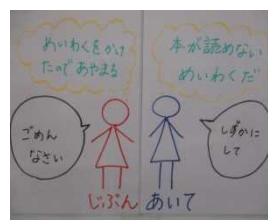 めいわくをかけ
たのであやまる
本が読めない
めいわくだ
ごめん
なさい
しずかに
して
じぶん
あいて